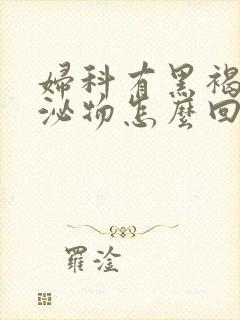 婦科有黑褐
泌物怎麼回
羅淦